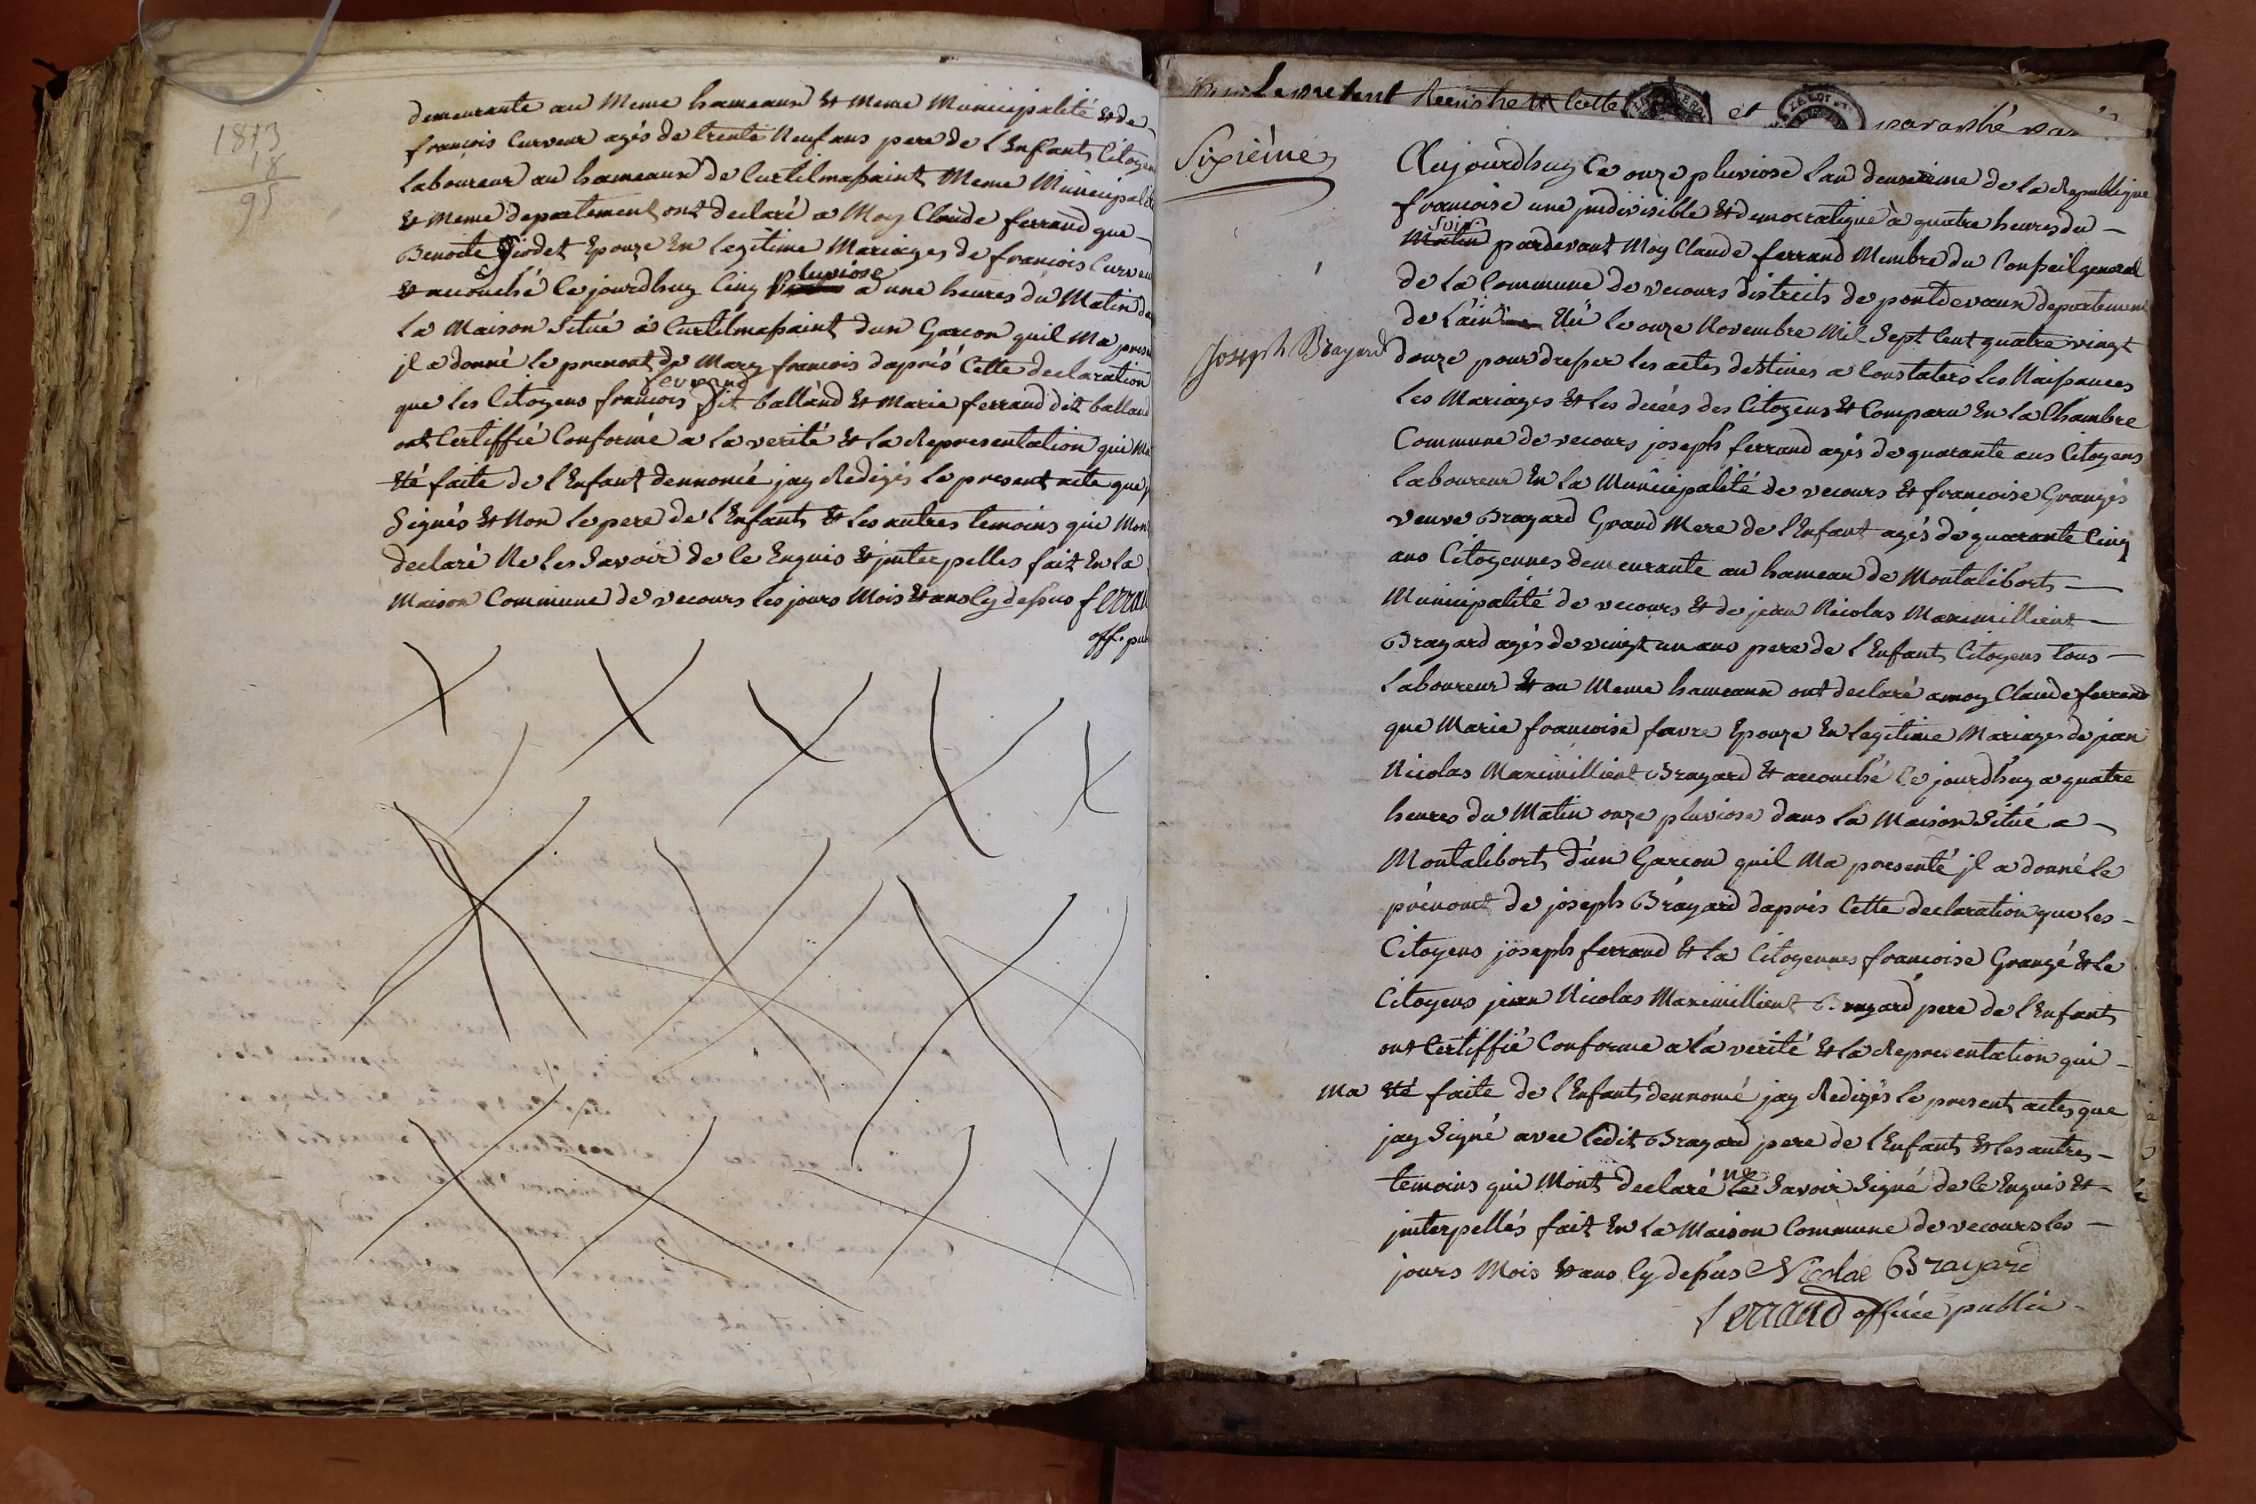 1813
18
95
demeurante au Meme hameaux & Meme Municipalité & de
françois Curveur agés de trente Neuf ans pere de l'Enfants Citoyen
Laboureur au hameaux de Curtilmapaint Meme Municipalité
& Meme departement ont declaré a Moy Claude ferrand que
Benoite Giodet Epouze En legitime Mariages de francois Curveur
& accouché Ce jourdhuy Cinq pluviose a une heures du Matin de
La Maison Situé à Curtilmapaint dun Garcon quil Ma presen
il a donné le prenont de Mary francois daprés Cette declaration
que les Citoyens francois ferrand dit balland & Marie ferrand dit balland
ont Certiffié Conforme a la verité & la Representation qui Ma
Eté faite de l'Enfant dennomé jay Redigés le present acte que j
Signés & Non le pere de l'Enfants & les autres temoins qui Mont
declaré Ne les Savoir de le Enquis & jnterpelles fait En la
Maison Commune de vecours les jours Mois & ans Cy depus ferran
off. pu
Le present Registre Cotté et paraphé par
Sixième
Aujourdhuy Ce onze pluviose Lan deuxieime de la Republique
francoise une jndivisible & democratique à quatre heures du
soir
Matin pardevant Moy Claude ferrand Membre du Conseil general
de La Commune de vecours districts de pontdevaux departement
de L'ain Elú le onze Novembre Mil Sept Cent quatre vingt
Joseph Brayard
douze pour dresser les actes destines a Constaters les Naissances
Les Mariages & les decés des Citoyens & Comparu En la Chambre
Commune de vecours joseph ferrand agés de quarante ans Citoyens
Laboureur En la Municipalité de vecours & francoise Grangés
veuve Brayard Grand Mere de l'Enfant agés de quarante Cinq
ans Citoyennes demeurante au hameau de Montaliborts
Municipalité de vecours & de jean Nicolas Maximillient
Brayard agés de vingt un ans pere de l'Enfants Citoyens tous
Laboureur & au Meme hameaux ont declaré a moy Claude ferrand
que Marie francoise favre Epouze En legitime Mariages de jean
Nicolas Maximillient Brayard & accouché Ce jourdhuy a quatre
heures du Matin onze pluviose dans la Maison Situé a
Montaliborts d'un Garcon quil Ma presenté jl a donné le
prénont de joseph Brayard daprés Cette declaration que les
Citoyens joseph ferrand & la Citoyennes francoise Grangé & le
Citoyens jean Nicolas Maximillient Brayard pere de l'Enfants
ont Certiffié Conforme a la verité & la Representation qui
Ma Eté faite de l'Enfants dennomé jay Redigés le present actes que
jay Signé avec ledit Brayard pere de l'Enfants & les autres
temoins qui Mont declaré ne Savoir Signé de le Enquis &
jnterpellés fait En la Maison Commune de vecours les
jours Mois & ans Cy depus Nicolas Brayard
ferrand officié public